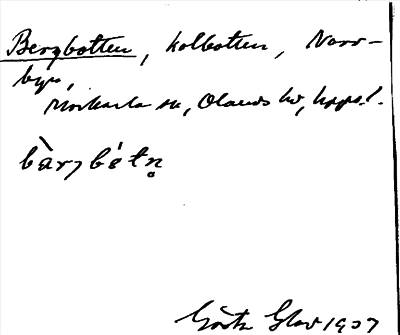 Bergbotten, kolbotten, Norr-
byn,
Morkarla sn, Olands hd, Uppl.
bàrjbótn̥
Gösta Glav 1927